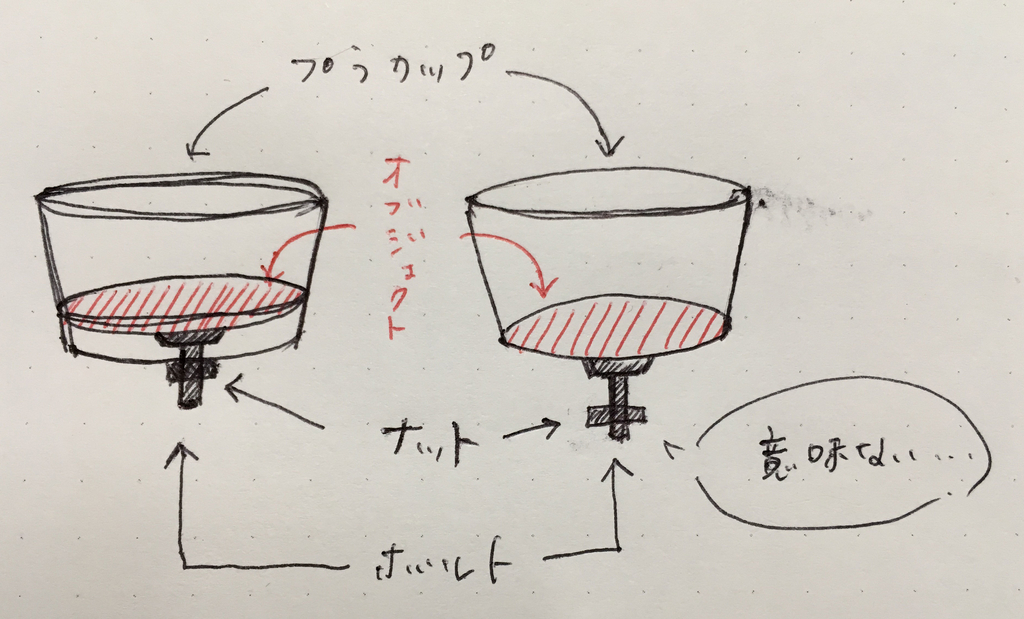 プラカップ
オブジェクト
ナット
意味ない...
ボルト